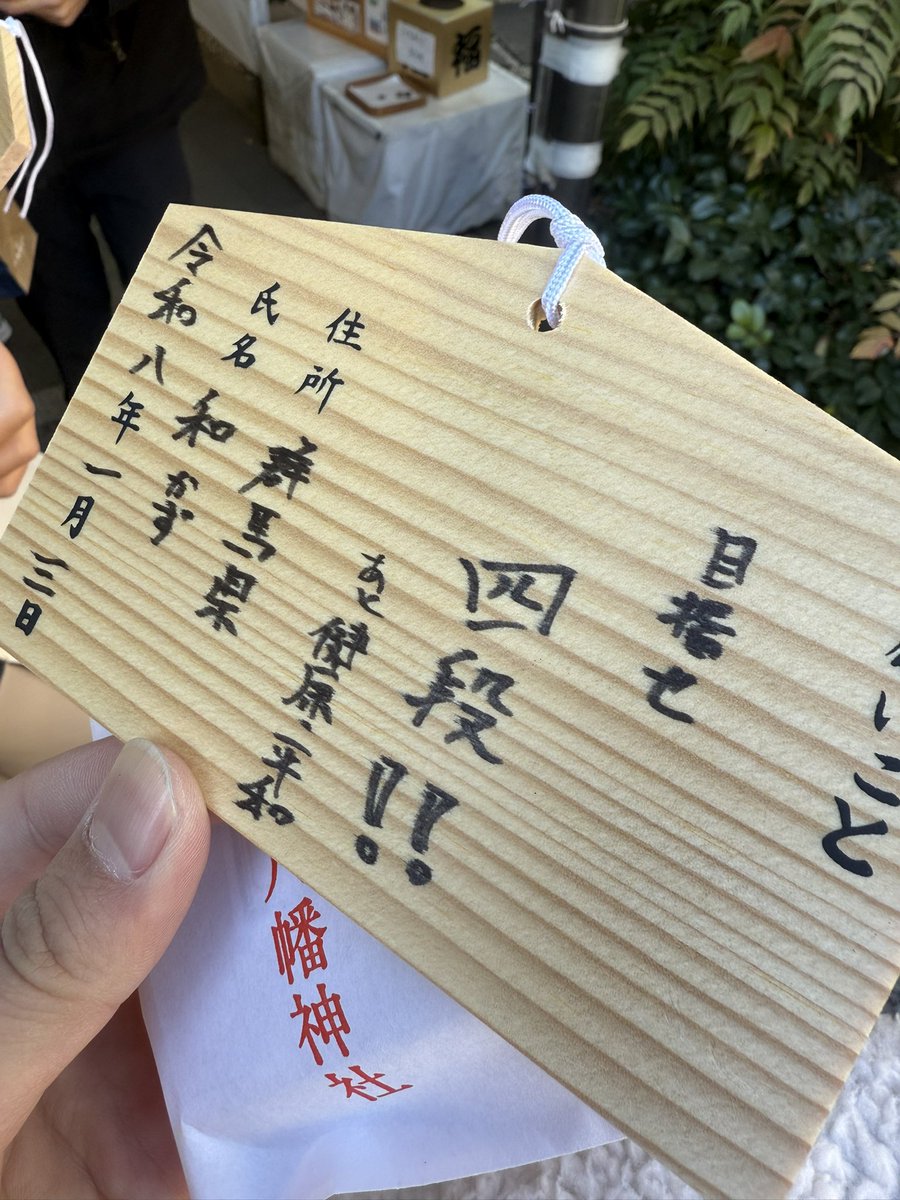 いこと
目指せ
四段!!
あと健康・平和
住所 群馬県
氏名 和 かず
令和八年一月三日
幡神社